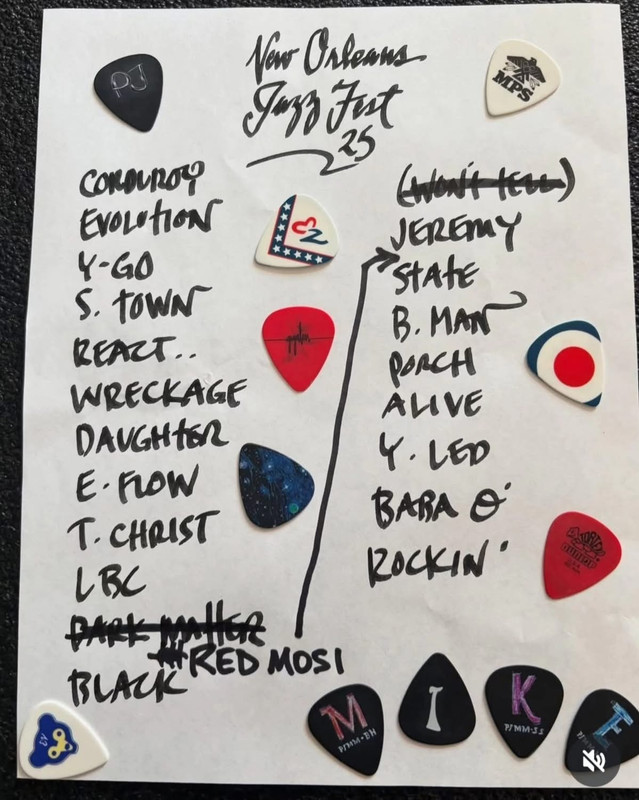 New Orleans
Jazz Fest
25
CORDUROY
EVOLUTION
Y-GO
S. TOWN
REACT..
WRECKAGE
DAUGHTER
E. FLOW
T. CHRIST
LBC
DARK MATTER
RED MOSI
BLACK
(WON'T TELL)
JEREMY
STATE
B. MAN
PORCH
ALIVE
Y. LED
BABA O'
ROCKIN'
PJ
MPS
TORTEX
M
I
K
E